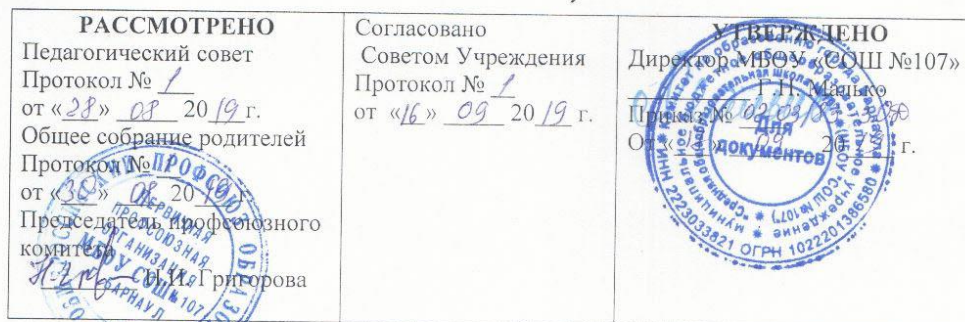 РАССМОТРЕНО
Педагогический совет
Протокол № 1
от «28» 08 2019 г.
Общее собрание родителей
Протокол № 1
от «30» 08 2019 г.
Председатель профсоюзного
комитета
Н.И. Григорова
ПЕРВИЧНАЯ
ПРОФСОЮЗНАЯ
ОРГАНИЗАЦИЯ
МБОУ СОШ № 107
БАРНАУЛ
Согласовано
Советом Учреждения
Протокол № 1
от «16» 09 2019 г.
УТВЕРЖДЕНО
Директор МБОУ «СОШ №107»
Г.П. Малько
Приказ №
От « » 09 20 г.
Для
документов
ИНН 2223033821 ОГРН 1022201386580